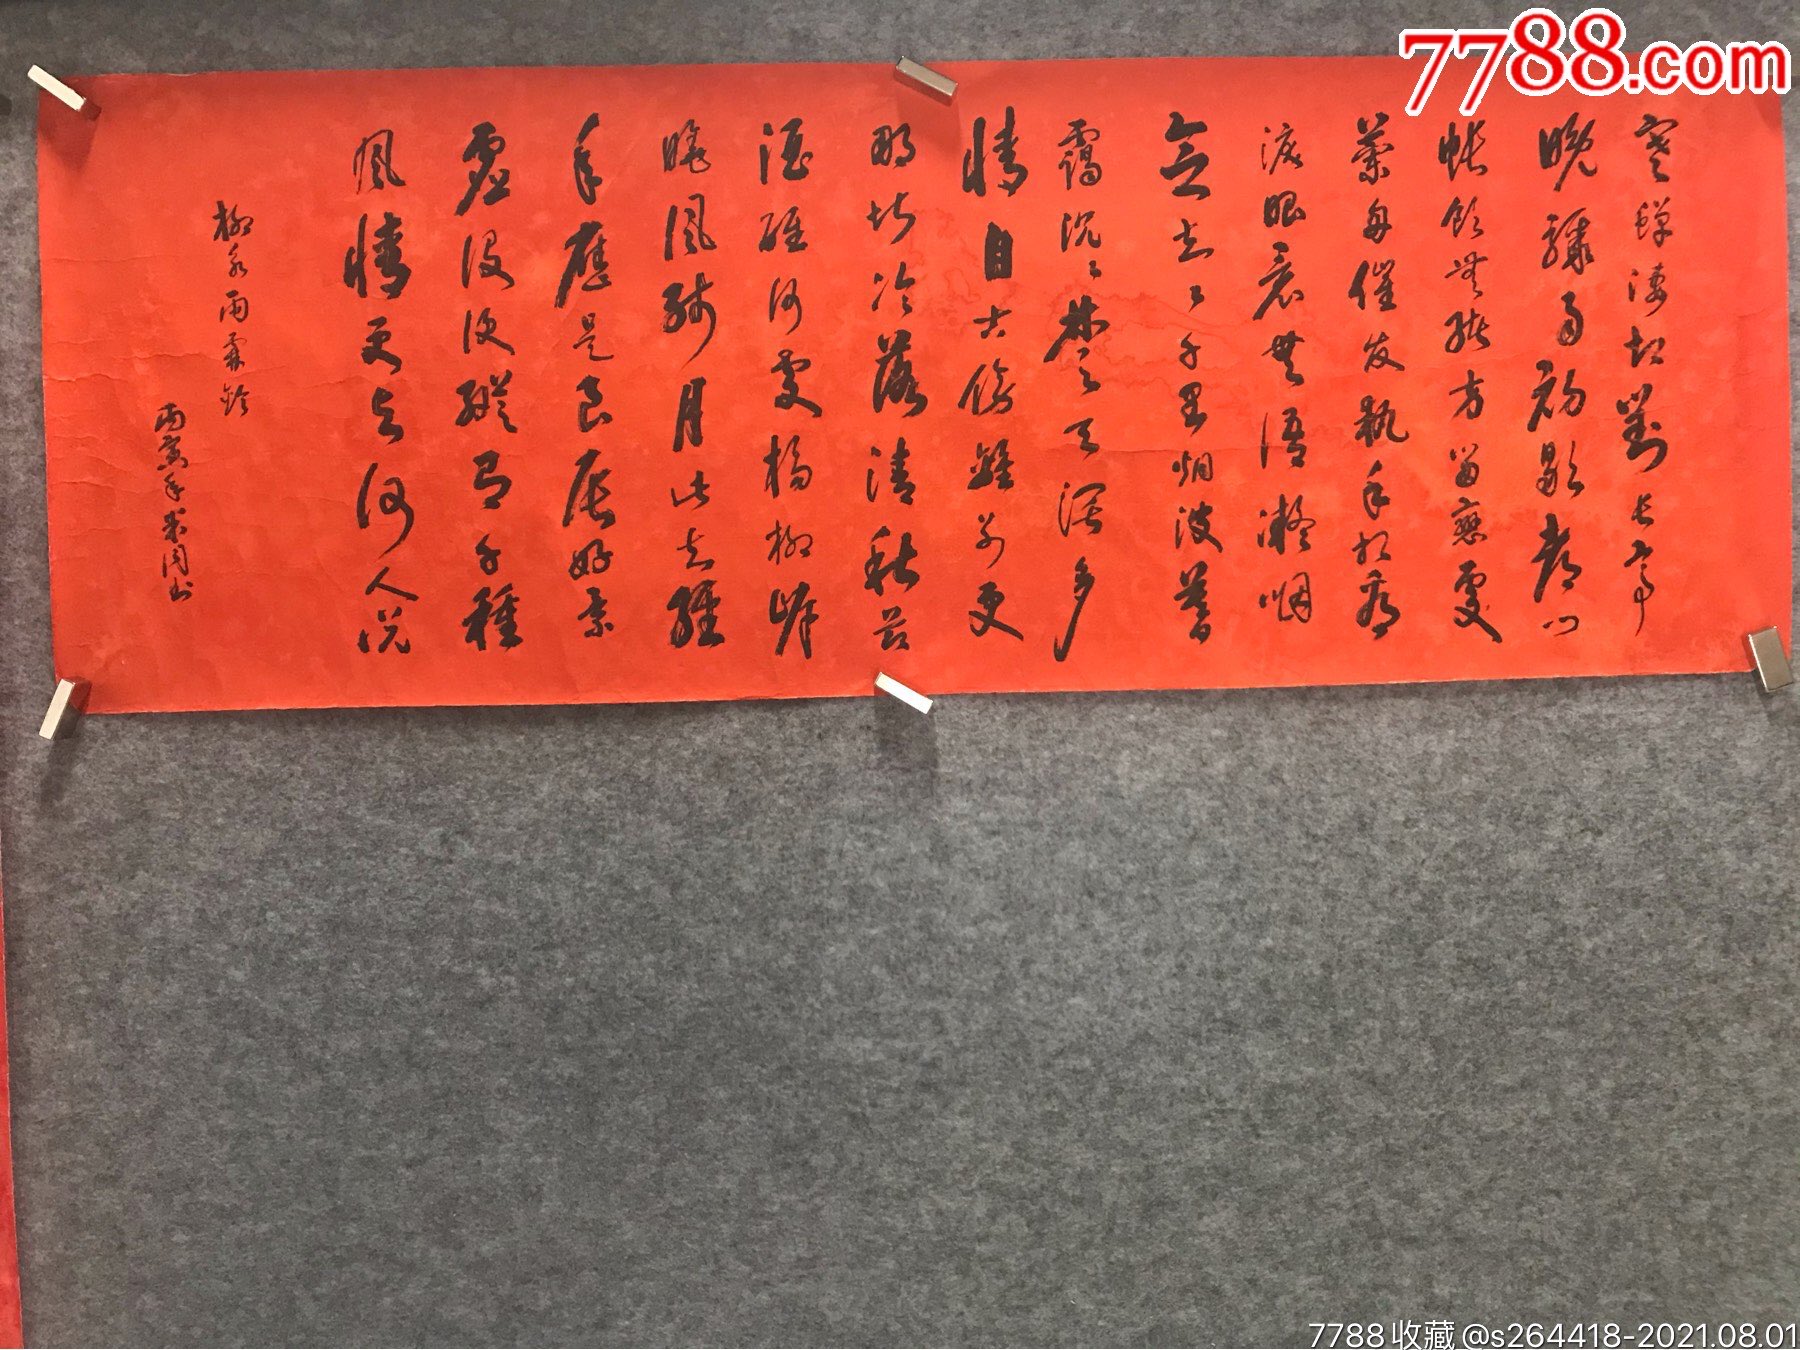 7788.com
寒蟬淒切對長亭
晚驟雨初歇都門
帳飲無緒方留戀處
蘭舟催發執手相看
淚眼竟無語凝咽
念去〻千里烟波暮
靄沉〻楚天濶多
情自古傷離別更
那堪冷落清秋節
酒醒何處楊柳岸
曉風殘月此去經
年應是良辰好景
虛設便縱有千種
風情更与何人說
柳永雨霖鈴
丙寅年书
7788收藏@s264418-2021.08.01